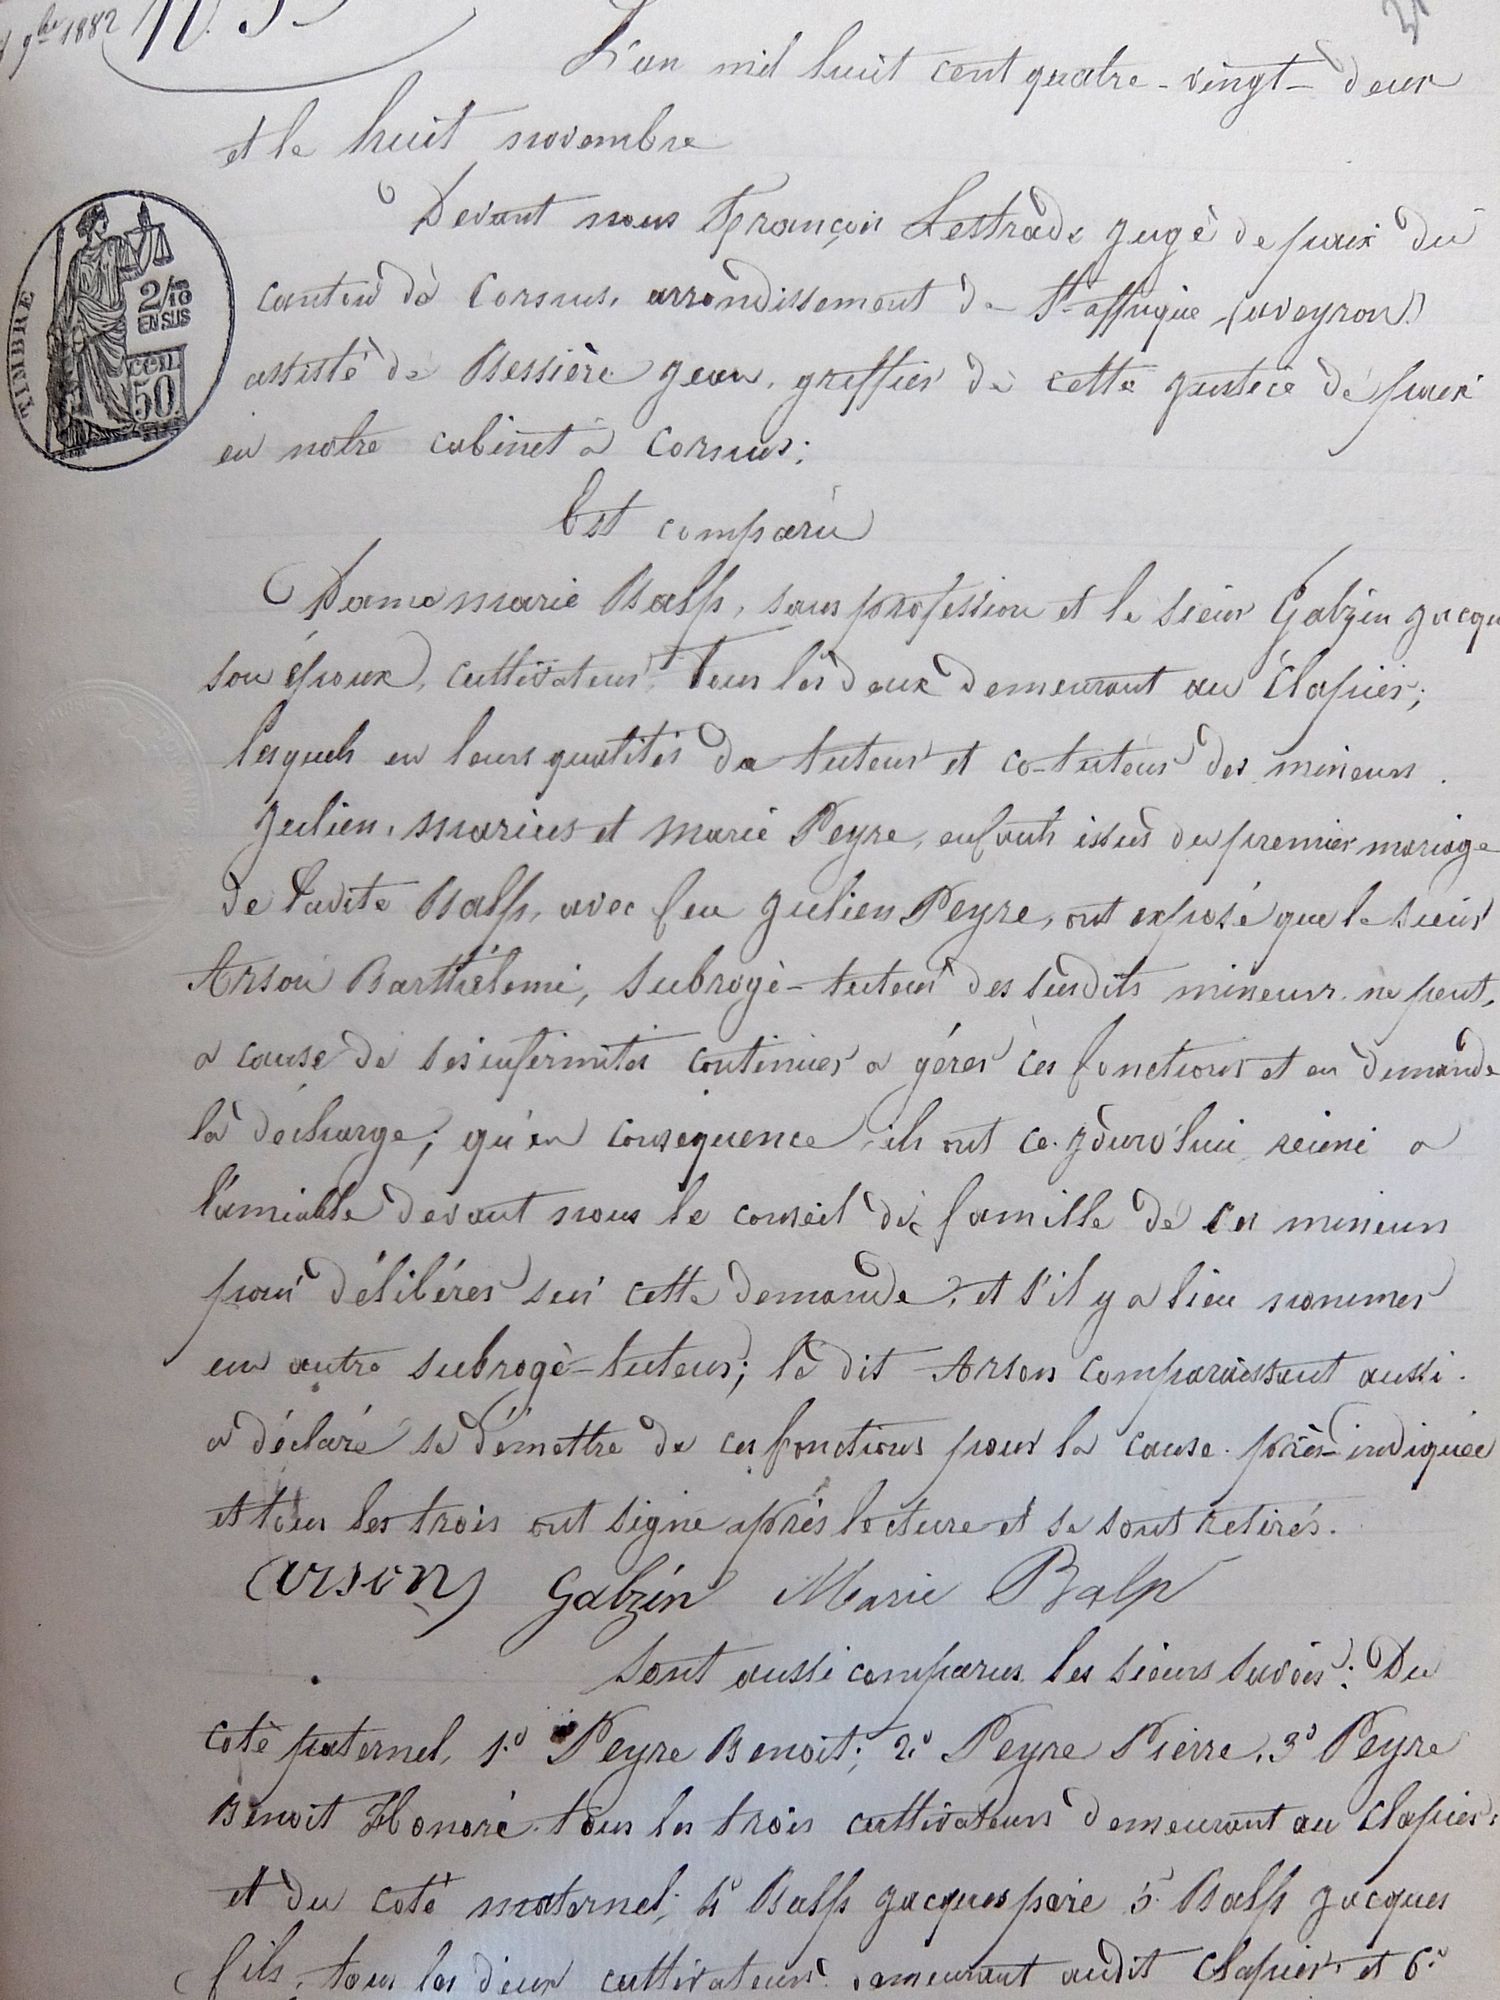 9bre 1882
N.
L'an mil huit cent quatre-vingt-deux
et le huit novembre
Devant nous François Lestrade juge de paix du
canton de Cornus, arrondissement de St affrique (aveyron)
assisté de Bessière Jean, greffier de cette justice de paix
en notre cabinet à Cornus;
Est comparu
TIMBRE
2/10
EN SUS
50
CEN.
Dame marie Balp, sans profession et le sieur Galzin Jacqu
son époux, cultivateur, Tous les deux demeurant au Clapier;
lesquels en leurs qualités de tuteur et co-tuteur des mineurs
Julien, Marius et Marie Peyre, enfants issus du premier mariage
de ladite Balp, avec feu Julien Peyre, ont exposé que le sieur
Arson Barthélemi, subrogé-tuteur des susdits mineurs ne peut,
a cause de ses infirmités continuer a gérer ces fonctions et en demande
la décharge; qu'en conséquence, ils ont ce jourd'hui réuni a
l'amiable devant nous le conseil de famille de ces mineurs
pour délibérer sur cette demande, et s'il y a lieu nommer
un autre subrogé-tuteur; le dit Arson comparaissant aussi
a déclaré se démettre de ces fonctions pour la cause près-indiquée
et tous les trois ont signé après lecture et se sont retirés.
arson Galzin Marie Balp
Sont aussi comparus les sieurs savoir: Du
coté paternel, 1o Peyre Benoit; 2o Peyre Pierre, 3o Peyre
Benoit Honoré tous les trois cultivateurs demeurant au Clapier;
et du coté maternel; 4o Balp Jacques père 5o Balp Jacques
fils, tous les deux cultivateurs demeurant audit Clapier, et 6o